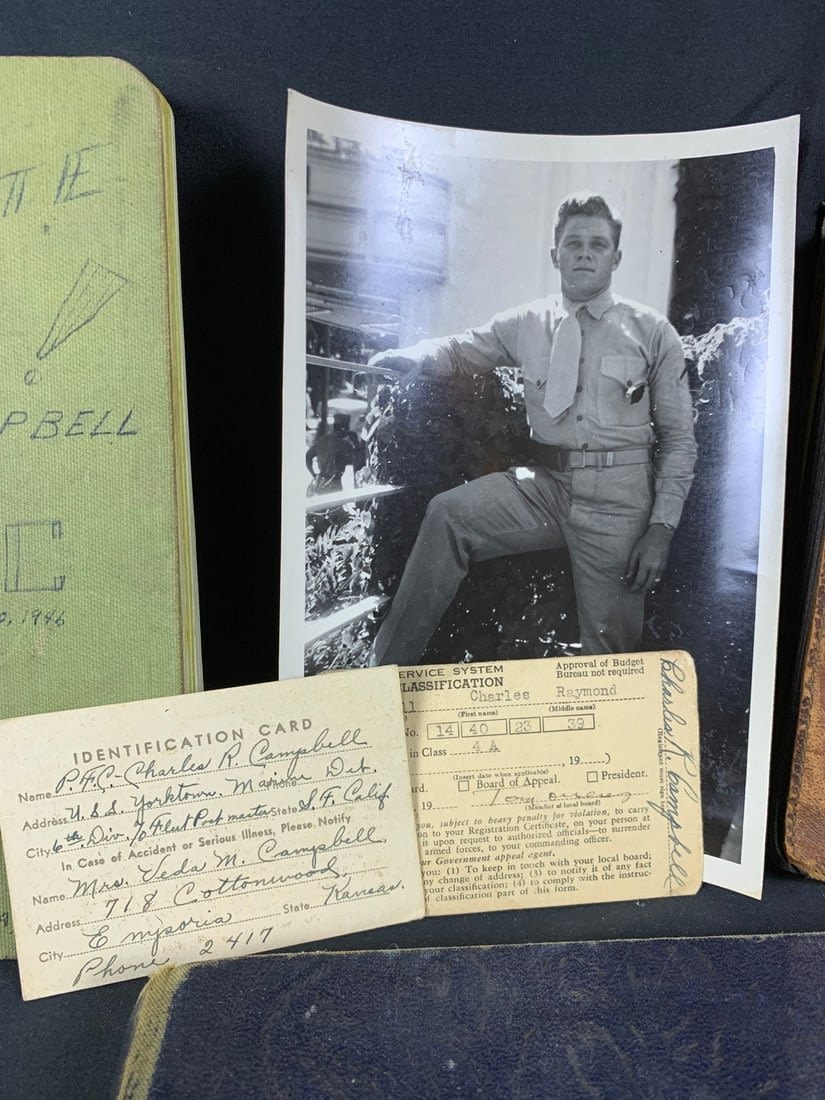 TTIE
PBELL
C
1946
IDENTIFICATION CARD
Name P.F.C. Charles R. Campbell
Address U.S.S. Yorktown. Marine Det. Phone
City 6th. Div. % Fleet Post master State S. F. Calif.
In Case of Accident or Serious Illness, Please Notify
Name Mrs. Veda M. Campbell
Address 718 Cottonwood
City Emporia State Kansas.
Phone 2417
ERVICE SYSTEM
LASSIFICATION
Approval of Budget
Bureau not required
ll Charles Raymond
(First name) (Middle name)
No. 14 40 23 39
in Class 4 A
, 19 )
(Insert date when applicable)
ard. Board of Appeal. President.
19
(Member of local board)
ou, subject to heavy penalty for violation, to carry
on to your Registration Certificate, on your person at
it upon request to authorized officials—to surrender
armed forces, to your commanding officer.
ur Government appeal agent.
you: (1) To keep in touch with your local board;
ny change of address; (3) to notify it of any fact
your classification; (4) to comply with the instruc-
f classification part of this form.
Charles R. Campbell
(Registrant must sign here)